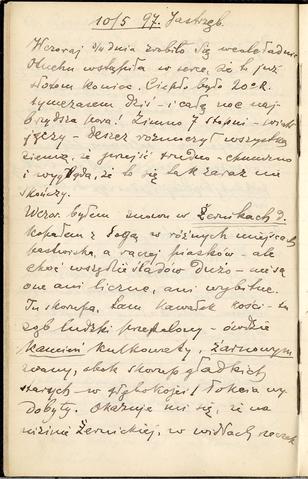 10/5 97. Jastrzęb.
Wczoraj zrobiło się wcale ładnie
Otucha wstąpiła w serce, że to już
słotom koniec. Ciepło było 20°R.
tymczasem dziś – i całą noc naj-
brzydsza pora! Zimno 7 stopni – wiatr
jęczy – deszcz rozmoczył wszystką
ziemię, że przejść trudno – chmurno
i wygląda, że to się tak zaraz nie
skończy.
Wczor byłem znowu w Żernikach D.
Kopałem z w różnych miejscach
pastwiska, a raczej piasków – ale
choć wszędzie śladów dużo – nie są
one ani liczne, ani wybitne.
Tu skorupa, tam kawałek kości –
ząb ludzki przepalony – ówdzie
kamień kulkowaty, żarnowym
zwany, obok skorup gładkich
starych – w głębokości 1 łokcia wy
dobyty. Okazuje mi się, że na
nizinie Żernickiej, w widłach rzeczek